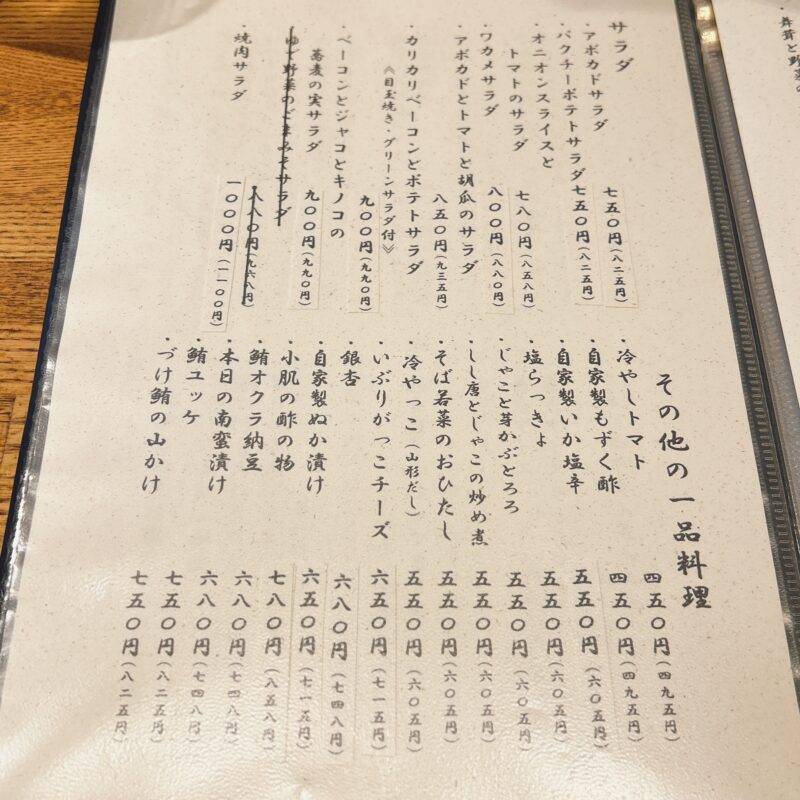 サラダ
・アボカドサラダ 七五〇円(八二五円)
・パクチーポテトサラダ 七五〇円(八二五円)
・オニオンスライスと
トマトのサラダ 七八〇円(八五八円)
・ワカメサラダ 八〇〇円(八八〇円)
・アボカドとトマトと胡瓜のサラダ 八五〇円(九三五円)
・カリカリベーコンとポテトサラダ
《目玉焼き・グリーンサラダ付》 九〇〇円(九九〇円)
・ベーコンとジャコとキノコの
蕎麦の実サラダ 九〇〇円(九九〇円)
・ゆで野菜のごまみそサラダ 八八〇円(九六八円)
・焼肉サラダ 一〇〇〇円(一一〇〇円)
その他の一品料理
・冷やしトマト 四五〇円(四九五円)
・自家製もずく酢 四五〇円(四九五円)
・自家製いか塩辛 五五〇円(六〇五円)
・塩らっきょ 五五〇円(六〇五円)
・じゃこと芽かぶとろろ 五五〇円(六〇五円)
・しし唐とじゃこの炒め煮 五五〇円(六〇五円)
・そば若菜のおひたし 五五〇円(六〇五円)
・冷やっこ(山形だし) 五五〇円(六〇五円)
・いぶりがっこチーズ 六五〇円(七一五円)
・銀杏 六八〇円(七四八円)
・自家製ぬか漬け 六五〇円(七一五円)
・小肌の酢の物 七八〇円(八五八円)
・鮪オクラ納豆 六八〇円(七四八円)
・本日の南蛮漬け 六八〇円(七四八円)
・鮪ユッケ 七五〇円(八二五円)
・づけ鮪の山かけ 七五〇円(八二五円)